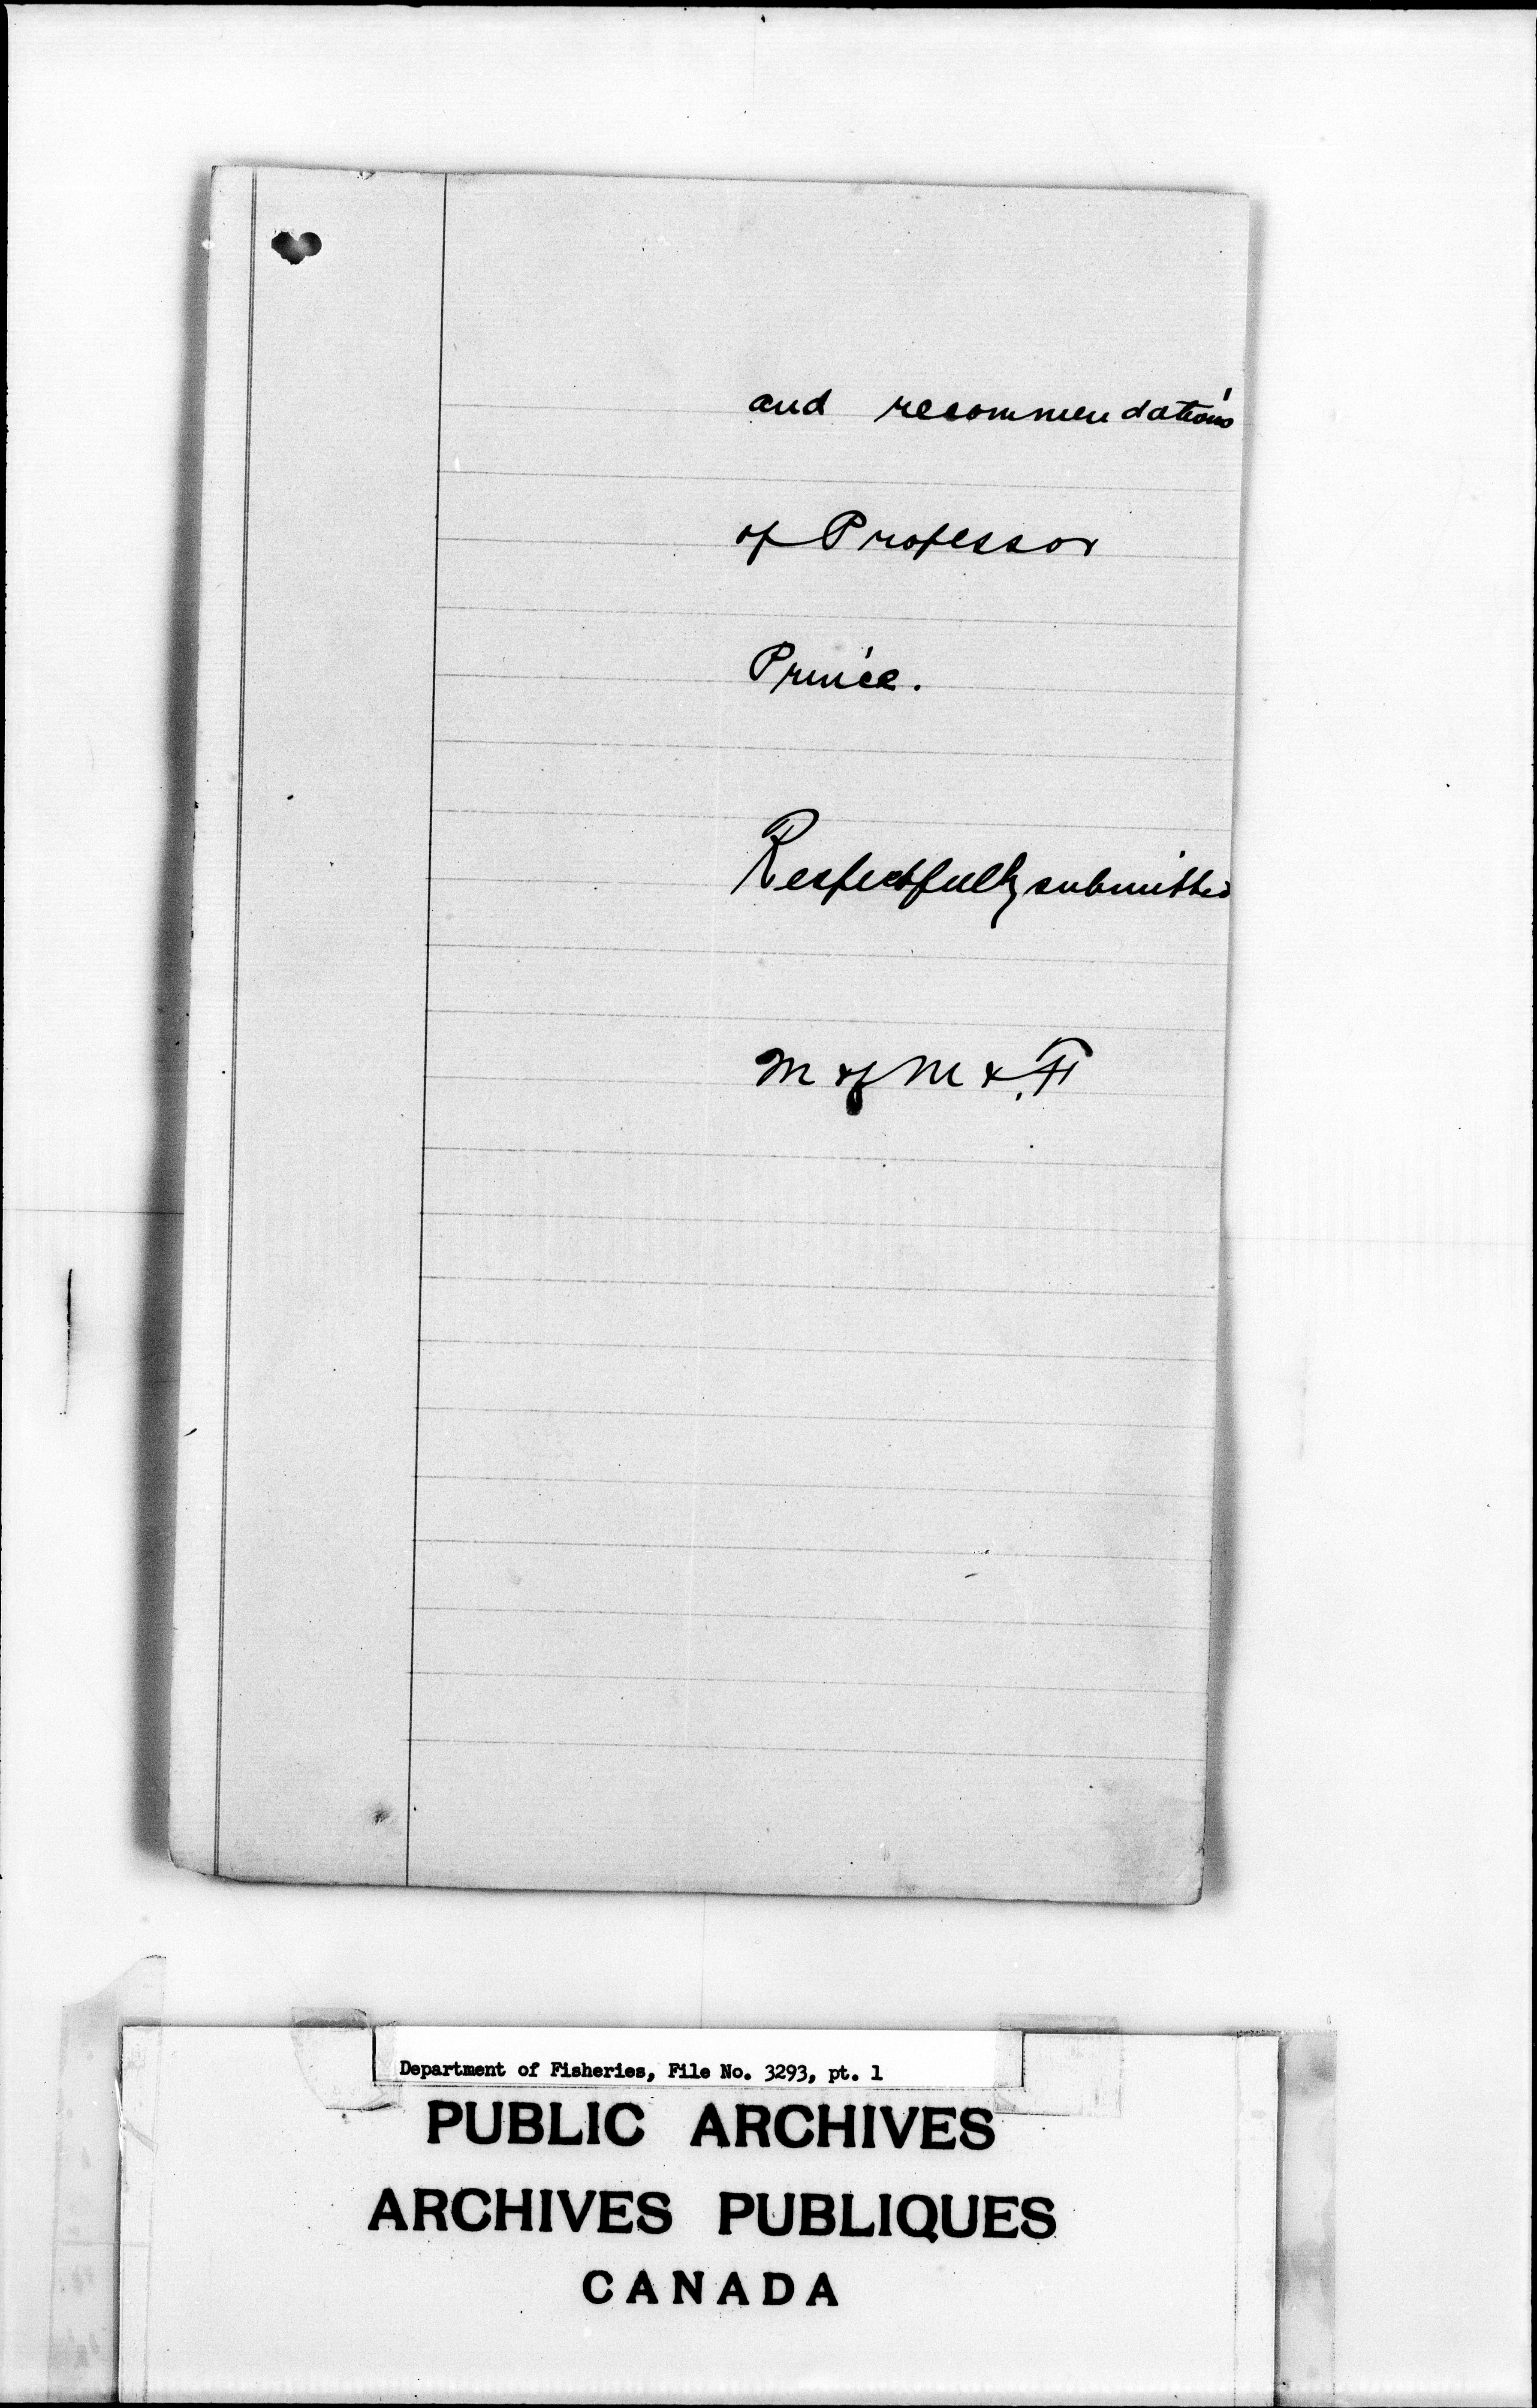 and recommendations
of Professor
Prince.
Respectfully submitted
M of M & F
Department of Fisheries, File No. 3293, pt. 1
PUBLIC ARCHIVES
ARCHIVES PUBLIQUES
CANADA